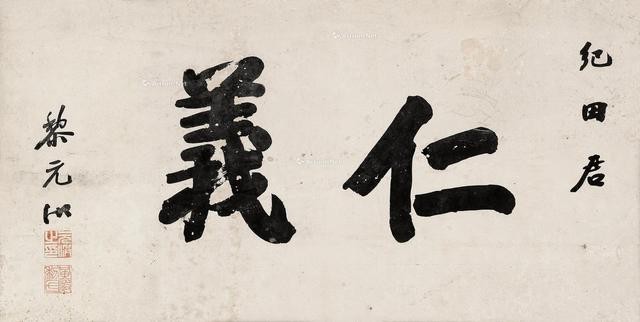 纪田君
仁義
黎元洪